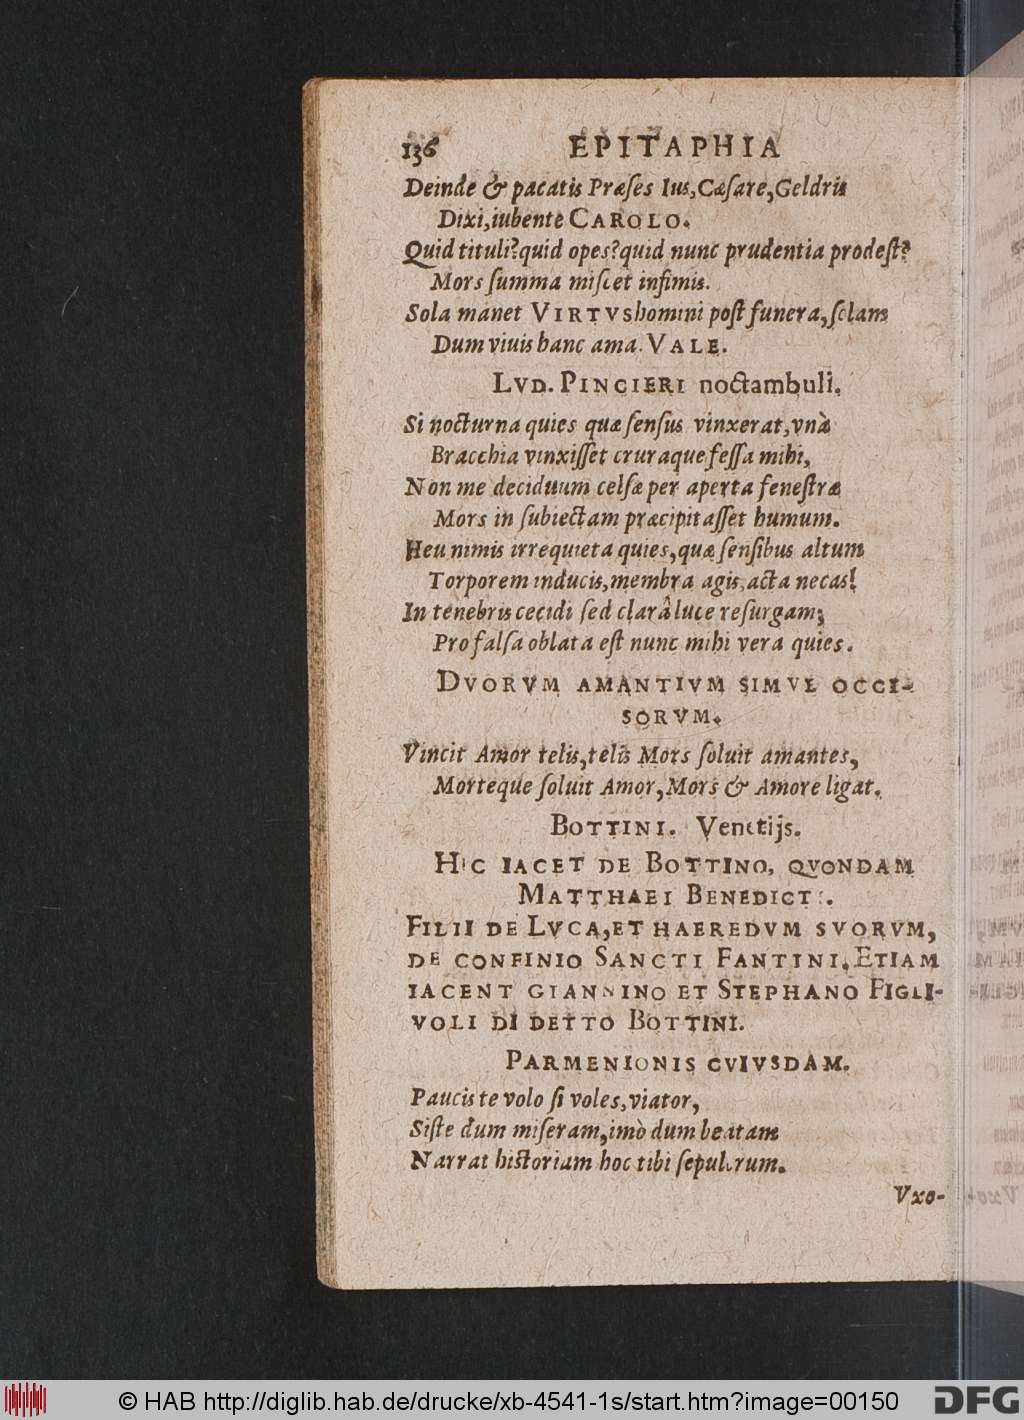 136 EPITAPHIA
Deinde & pacatis Præſes Ius,Cæſare,Geldris
Dixi,iubente CAROLO.
Quid tituli?quid opes?quid nunc prudentia prodeſt?
Mors ſumma miſcet infimis.
Sola manet VIRTVS homini poſt funera,ſolam
Dum viuis hanc ama. VALE.
LVD. PINCIERI noctambuli.
Si nocturna quies quæ ſenſus vinxerat,vnà
Bracchia vinxiſſet cruraque feſſa mihi,
Non me deciduum celſæ per aperta feneſtræ
Mors in ſubiectam præcipitaſſet humum.
Heu nimis irrequieta quies,quæ ſenſibus altum
Torporem inducis,membra agis,acta necas!
In tenebris cecidi ſed clarâ luce reſurgam;
Pro falſa oblata eſt nunc mihi vera quies.
DVORVM AMANTIVM SIMVL OCCI-
SORVM.
Vincit Amor telis,telis Mors ſoluit amantes,
Morteque ſoluit Amor,Mors & Amore ligat.
BOTTINI. Venetijs.
HIC IACET DE BOTTINO, QVONDAM
MATTHAEI BENEDICTI.
FILII DE LVCA,ET HAEREDVM SVORVM,
DE CONFINIO SANCTI FANTINI.ETIAM
IACENT GIANNINO ET STEPHANO FIGLI-
VOLI DI DETTO BOTTINI.
PARMENIONIS CVIVSDAM.
Paucis te volo ſi voles,viator,
Siſte dum miſeram,imò dum beatam
Narrat hiſtoriam hoc tibi ſepulcrum.
Vxo-
© HAB http://diglib.hab.de/drucke/xb-4541-1s/start.htm?image=00150
DFG